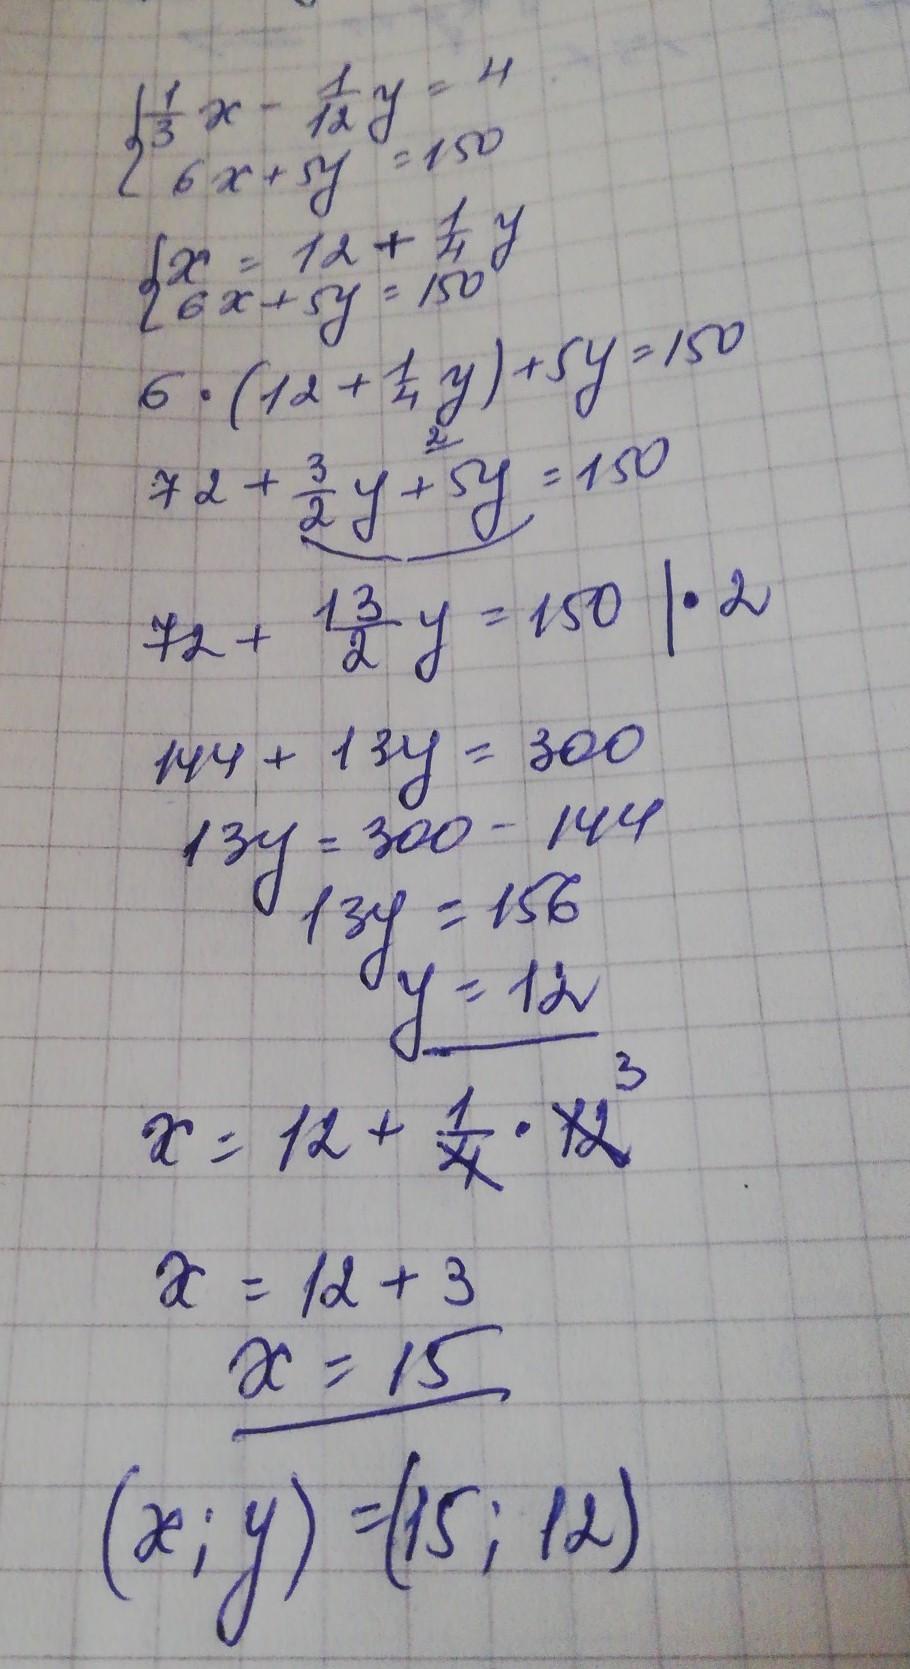 {1/3 x - 1/12 y = 4
{6x + 5y = 150
{x = 12 + 1/4 y
{6x + 5y = 150
6 · (12 + 1/4 y) + 5y = 150
72 + 3/2 y + 5y² = 150
72 + 13/2 y = 150 | · 2
144 + 13y = 300
13y = 300 - 144
13y = 156
y = 12
x = 12 + 1/4 · 12³
x = 12 + 3
x = 15
(x; y) = (15; 12)